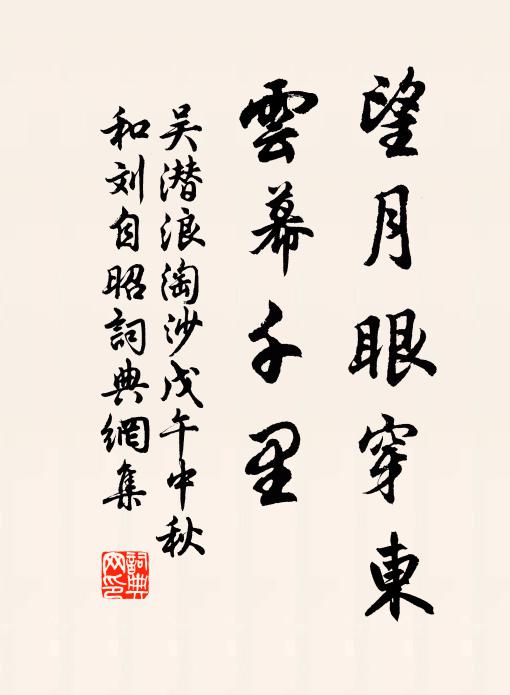 望月眼穿東
雲幕千里
吴潜浪淘沙戊午中秋
和刘自昭詞典網集
詞典網印